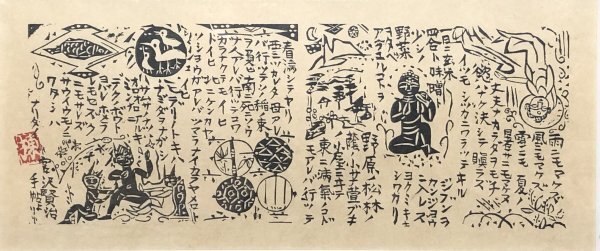 雨ニモマケズ
風ニモマケズ
雪ニモ夏ノ
暑サニモマケヌ
丈夫ナカラダヲモチ
慾ハナク決シテ瞋ラズ
イツモシヅカニワラッテヰル
一日ニ玄米
四合ト味噌
少シノ
野菜ヲ
タベ
アラユルコトヲ
ジブンヲ
カンジョウニ
入レズニ
ヨクミキキシ
ワカリ
野原ノ松林ノ
蔭ノ小サナ萱ブキノ
小屋ニヰテ
東ニ病氣ノコドモ
アレバ行ッテ
看病シテヤリ
西ニツカレタ母アレ
バ行ッテソノ稲ノ束
ヲ負ヒ南ニ死ニサウナ
人アレバ行ッテコワ
ガラナクテモイヽ
トイヒ
北ニケンクヮヤ
ソショウガアレバツマラナイカラヤメロト
イヒ
ヒデリノトキハ
ナミダヲナガシ
サムサノナツハ
オロオロアルキ
ミンナニ
デクノボート
ヨバレホメラレ
モセズクニ
モサレズ
サウイフモノニ
ワタシハ
ナリタイ
宮沢賢治
手帖ヨリ